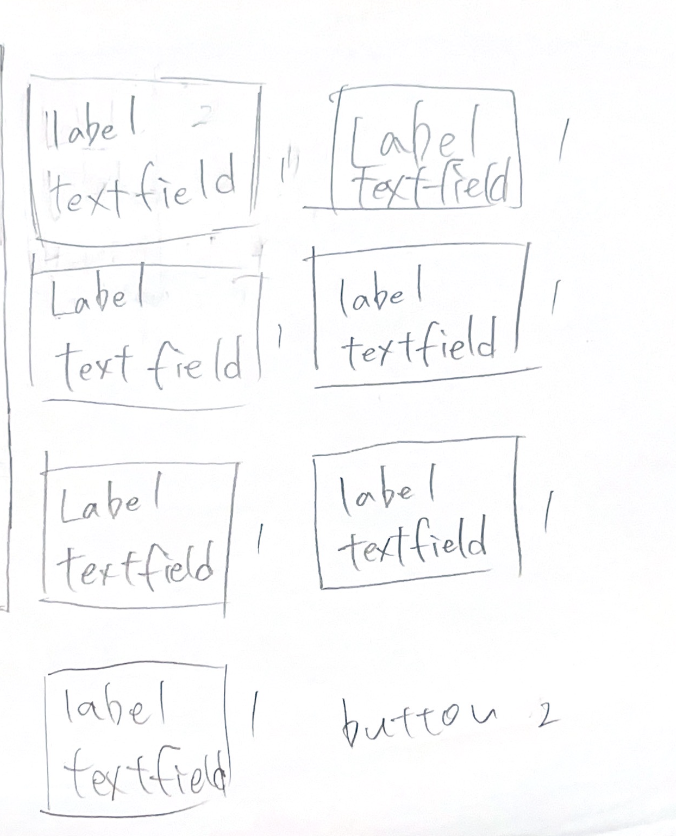 label 2
textfield 1
Label 1
textfield
Label
text field 1
label 1
textfield
Label
textfield 1
label
textfield 1
label 1
textfield
button 2